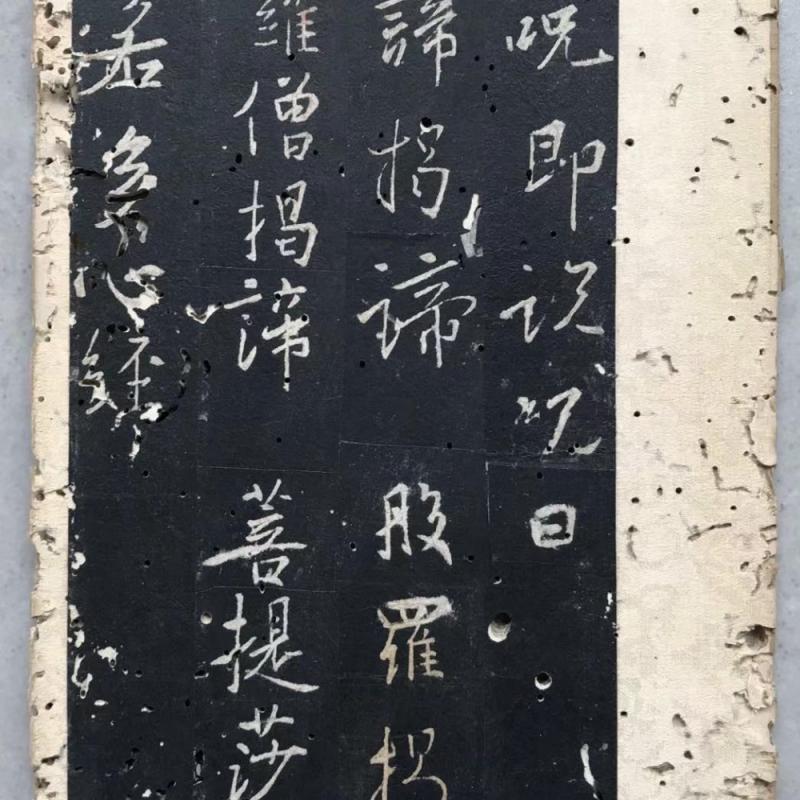 呪即說呪曰
諦揭諦般羅揭
羅僧揭諦菩提莎
若多心經